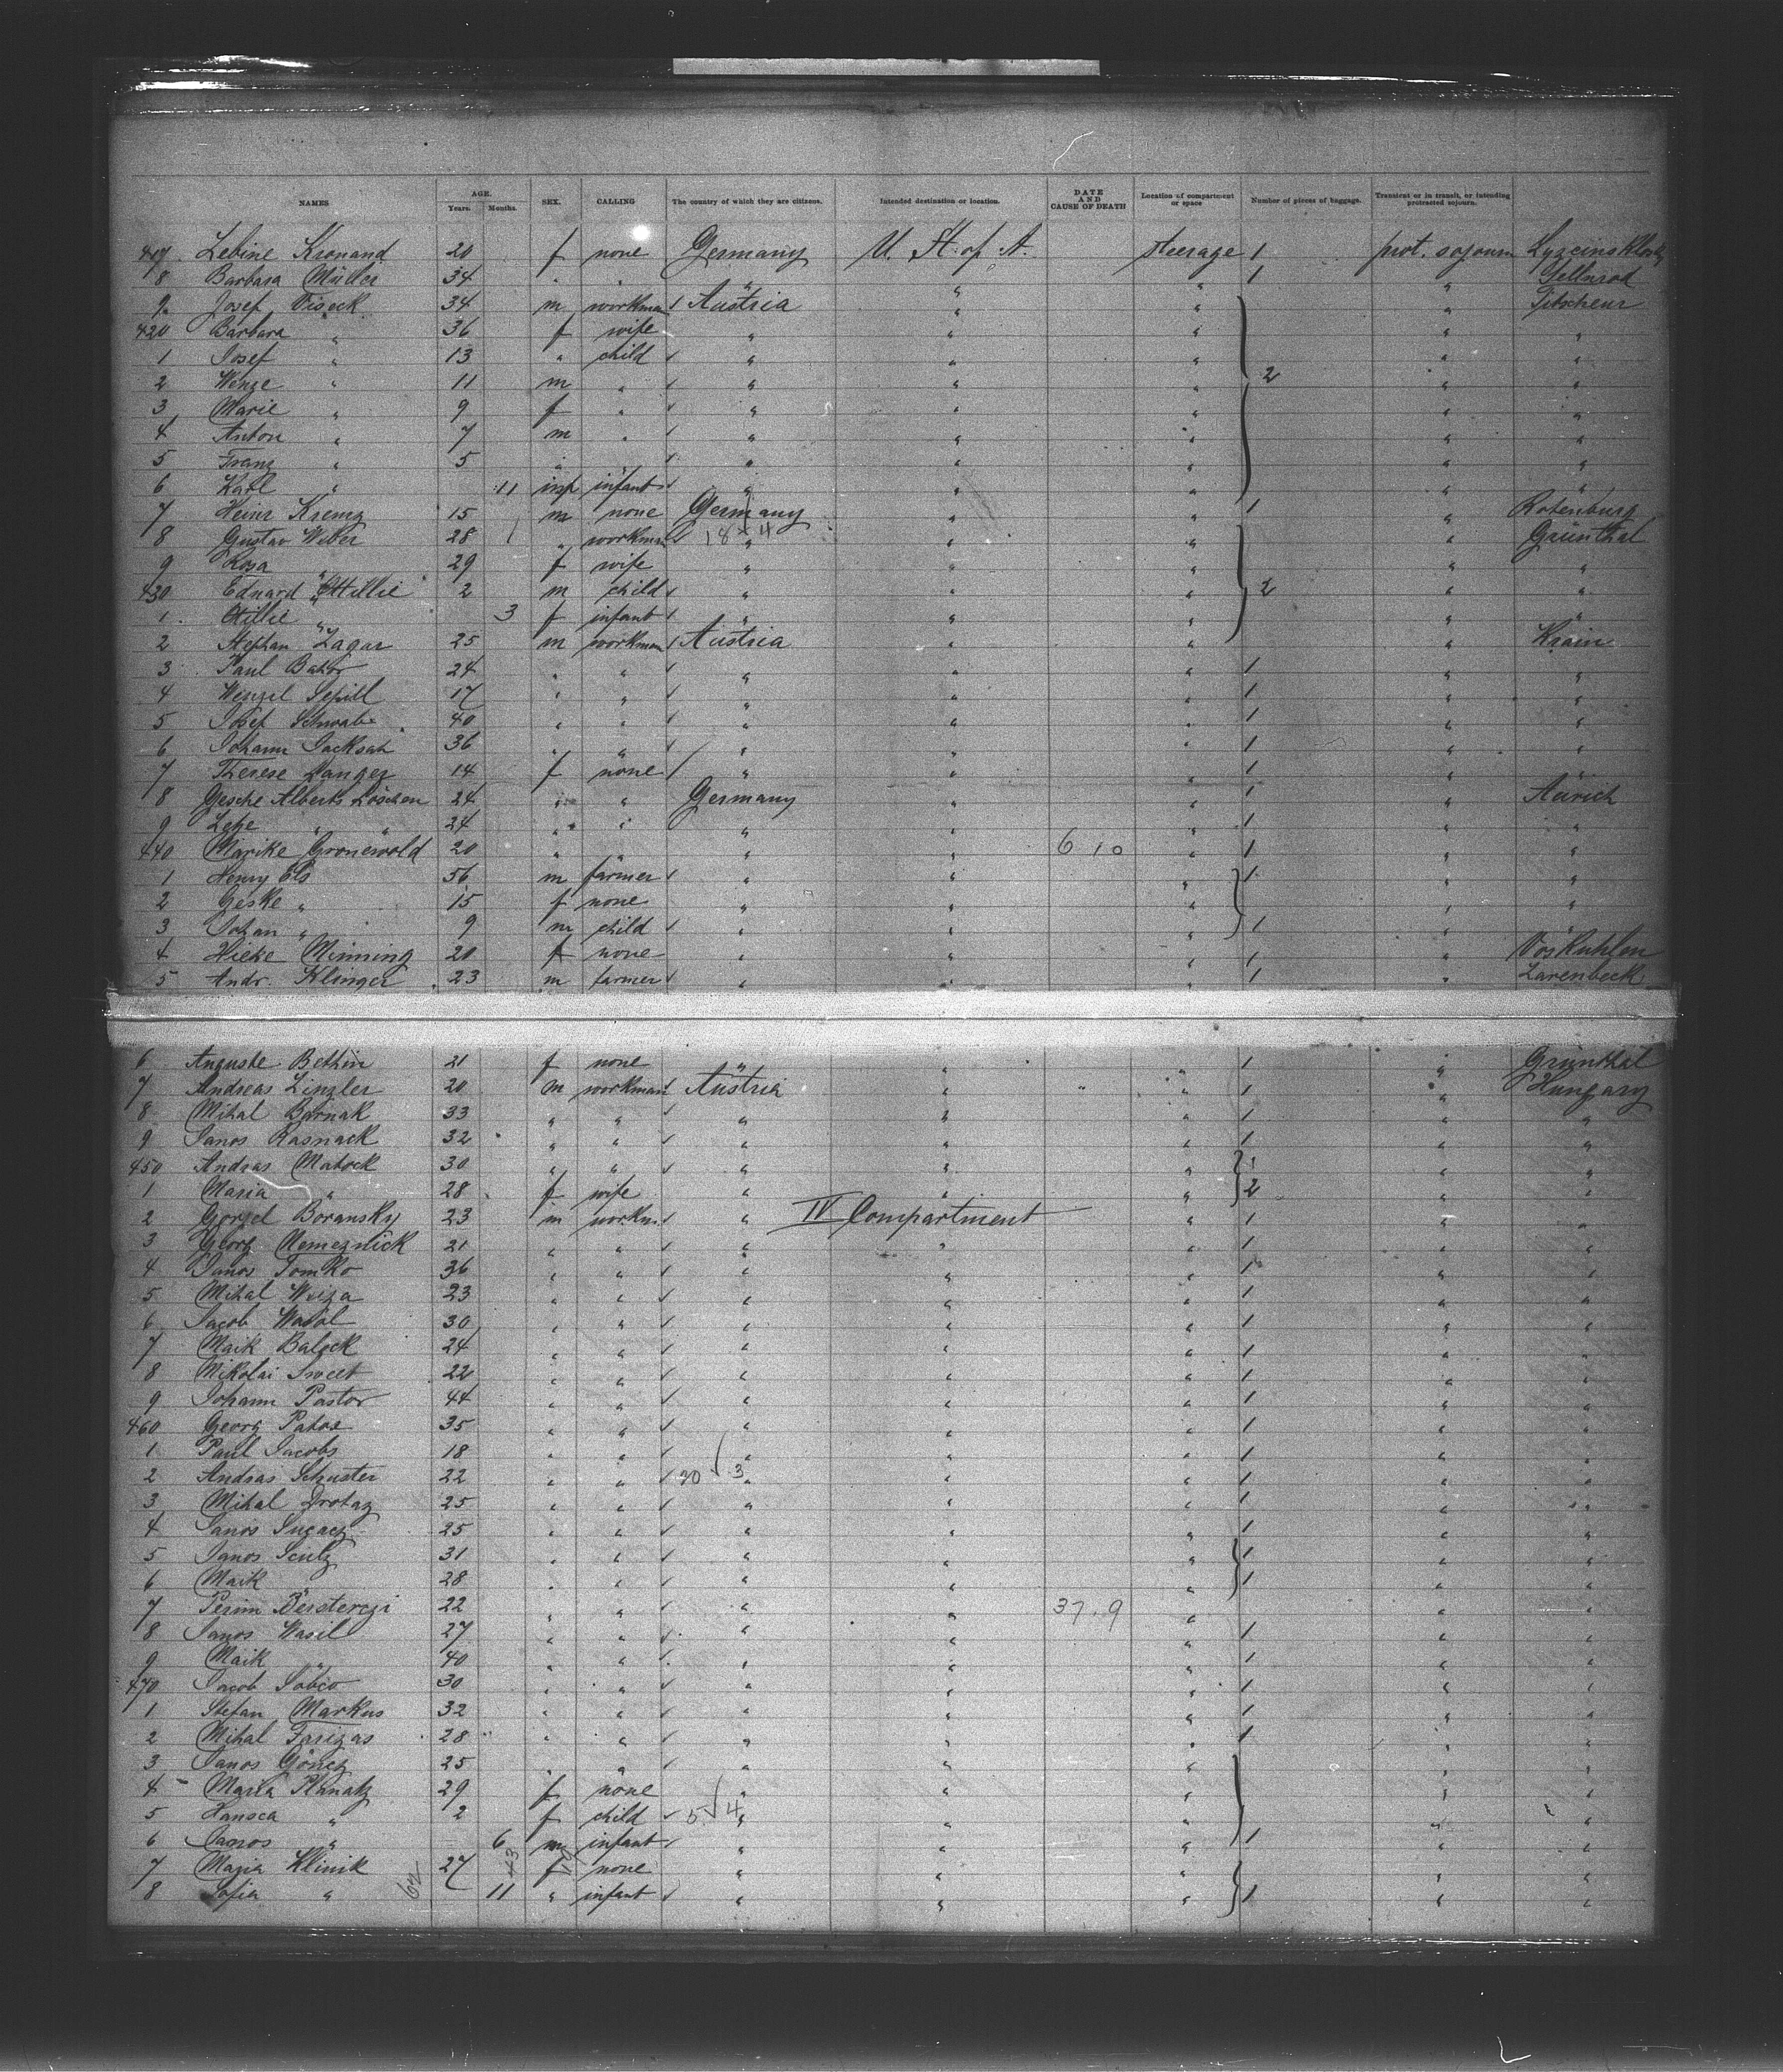 NAMES AGE. Years. Months. SEX. CALLING The country of which they are citizens. Intended destination or location. DATE AND CAUSE OF DEATH Location of compartment or space Number of pieces of baggage. Transient or in transit, or intending protracted sojourn.
417 Lebine Kronand 20 f none Germany U. St. of A. steerage 1 prot. sojourn
8 Barbara Müller 34 " " " " " 1 "
9 Josef Viseck 34 m workman Austria " " "
420 Barbara " 36 f wife " " " " "
1 Josef " 13 " child " " " " "
2 Wenze " 11 m " " " " 2 " "
3 Marie " 9 f " " " " " "
4 Anton " 7 m " " " " " "
5 Franz " 5 " " " " " " "
6 Karl " 11 infant " " " " "
7 Heinr Kremz 15 m none Germany " " 1 " Rotenburg
8 Gustav Weber 28 " workman 18 4 " " " " Grünthal
9 Rosa " 29 f wife " " " " "
430 Eduard Ottillie 2 m child " " " 2 " "
1 Ottilie " 3 f infant " " " " "
2 Stephan Zagar 25 m workman Austria " " " Krain
3 Paul Bator 24 " " " " " 1 " "
4 Wenzel Sepill 17 " " " " " 1 " "
5 Josef Schwabe 40 " " " " " 1 " "
6 Johann Jacksch 36 " " " " " 1 " "
7 Therese Langer 14 f none " " " 1 " "
8 Gesche Alberts Loschen 24 " " Germany " " 1 " Aurich
9 " " 24 " " " " " 1 " "
440 Marike Gronewold 20 " " " " 6 10 " 1 " "
1 Henry Els 56 m farmer " " " 1 " "
2 Geske " 15 f none " " " " "
3 Johan " 9 m child " " " 1 " "
4 Hieke Minning 20 f none " " " 1 "
5 Andr. Klinger 23 m farmer " " " 1 " Larenbeck
6 Auguste Bethin 21 f none " " " 1 " Grünthal
7 Andreas Linzler 20 m workman Austria " " " 1 " Hungary
8 Mihal Barnak 33 " " " " " 1 " "
9 Janos Rasnack 32 " " " " " 1 " "
450 Andras Matock 30 " " " " " 1 " "
1 Maria " 28 f wife " " " 2 " "
2 Boransky 23 m workm " IV Compartment " 1 " "
3 Georg Nemeznick 21 " " " " " 1 " "
4 Janos Tomko 36 " " " " " 1 " "
5 Mihal Weiza 23 " " " " " 1 " "
6 Jacob Wasol 30 " " " " " 1 " "
7 Maik Balock 24 " " " " " 1 " "
8 Mikolai Sweet 22 " " " " " 1 " "
9 Johann Pastor 44 " " " " " 1 " "
460 Georg 35 " " " " " 1 " "
1 Paul Jacobs 18 " " " " " 1 " "
2 Andras Schuster 22 " " 20 3 " " " 1 " "
3 Mihal Drotaz 25 " " " " " 1 " "
4 Janos 25 " " " " " 1 " "
5 Janos 31 " " " " " 1 " "
6 Maik " 28 " " " " " 1 " "
7 22 " " " " 37.9 " " "
8 Janos Wasil 27 " " " " " 1 " "
9 Maik " 40 " " " " " 1 " "
470 Jacob 30 " " " " " 1 " "
1 Stefan Markus 32 " " " " " 1 " "
2 Mihal Farizas 28 " " " " " 1 " "
3 Janos Göncz 25 " " " " " " "
4 Maria 29 f none " " " " "
5 " 2 f child 5 4 " " " " "
6 Janos " 6 m infant " " " 1 " "
7 Maria Klinik 27 f none " " " " "
8 Sofia " 11 " infant " " " 1 " "
62 43 19